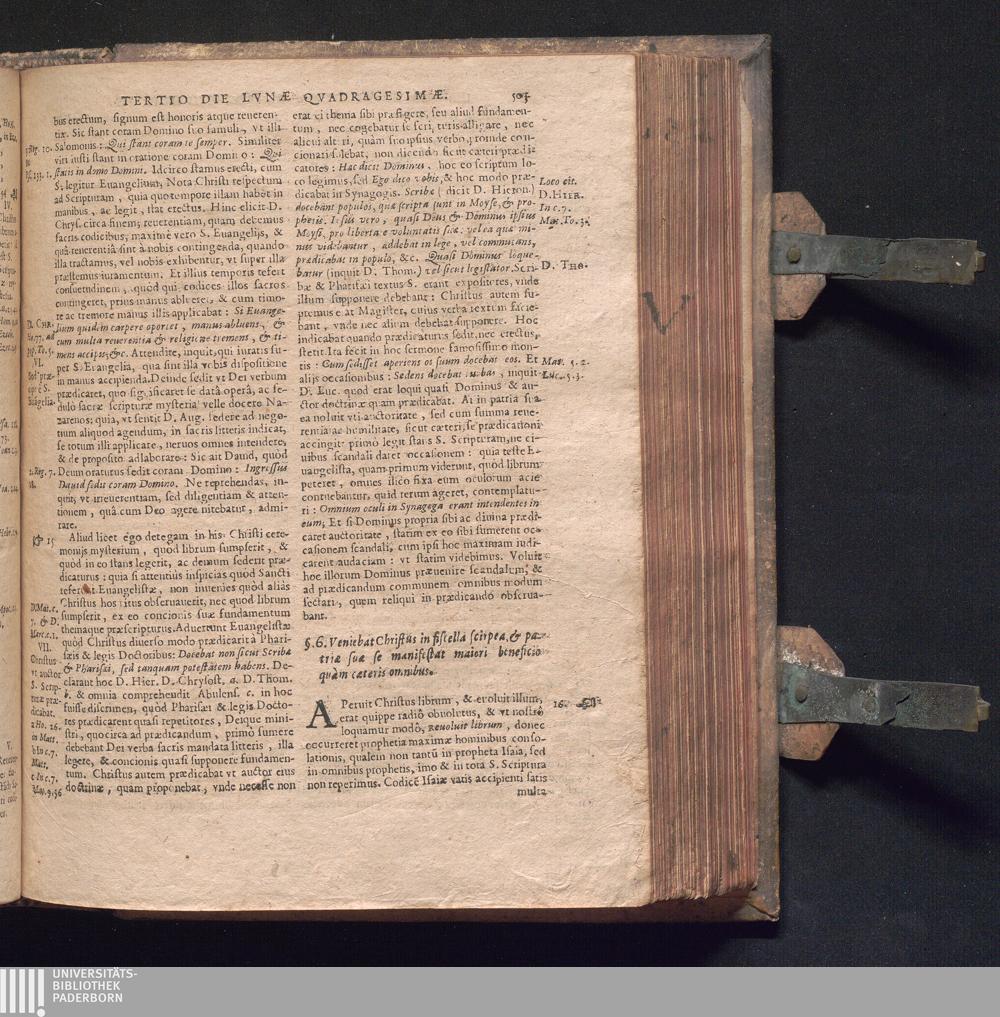 TERTIO DIE LVNÆ QVADRAGESIMÆ.
bus erectum, signum est honoris atque reueren-
tiæ. Sic stant coram Domino suo famuli, vt illi
Salomonis: Qui stant coram te semper. Similiter
viri iusti stant in oratione coram Domino: Qui
statis in domo Domini. Idcirco stamus erecti, cum
S. legitur Euangelium, Nota Christi respectum
ad Scripturam, quia quo tempore illam habet in
manibus, ac legit, stat erectus. Hinc elicit D.
Chrys. circa finem, reuerentiam, quam debemus
sacris codicibus, maximè vero S. Euangelijs, &
quâ reuerentiâ sint à nobis contingenda, quando
illa tractamus, vel nobis exhibentur, vt super illa
præstemus iuramentum. Et illius temporis refert
consuetudinem, quòd qui codices illos sacros
contingeret, prius manus ablueret, & cum timo-
re ac tremore manus illis applicabat: Si Euange-
lium quidem carpere oportet, manus abluens, &
cum multa reuerentia & religione tremens, & ti-
mens accipis, &c. Attendite, inquit, qui iuratis su-
per S. Euangelia, qua sint illa vobis dispositione
in manus accipienda. Deinde sedit vt Dei verbum
prædicaret, quo significaret se datâ operâ, ac se-
dulò sacræ scripturæ mysteria velle docero Na-
zarenos: quia, vt sentit D. Aug. sedere ad nego-
tium aliquod agendum, in sacris litteris indicat,
se totum illi applicare, neruos omnes intendere,
& de proposito adlaborare: Sic ait Dauid, quòd
Deum oraturus sedit coram Domino: Ingressus
Dauid sedit coram Domino. Ne reprehendas, in-
quit, vt irreuerentiam, sed diligentiam & atten-
tionem, quâ cum Deo agere nitebatur, admi-
rare.
Aliud licet ego detegam in his Christi cere-
monijs mysterium, quòd librum sumpserit, &
quòd in eo stans legerit, ac demum sederit præ-
dicaturus: quia si attentiùs inspicias quòd Sancti
referunt Euangelistæ, non inuenies quòd aliàs
Christus hos ritus obseruauerit, nec quòd librum
sumpserit, ex eo concionis suæ fundamentum
themaque præscripturus. Aduertunt Euangelistæ
quòd Christus diuerso modo prædicarit à Phari-
sæis & legis Doctoribus: Docebat non sicut Scribæ
& Pharisæi, sed tanquam potestatem habens. De-
clarant hoc D. Hier. D. Chrysost. a. D. Thom.
b. & omnia comprehendit Abulens. c. in hoc
fuisse discrimen, quòd Pharisæi & legis Docto-
res prædicarent quasi repetitores, Deique mini-
stri, quocirca ad prædicandum, primò sumere
debebant Dei verba sacris mandata litteris, illa
legere, & concionis quasi supponere fundamen-
tum. Christus autem prædicabat vt auctor eius
doctrinæ, quam proponebat, vnde necesse non
erat ei thema sibi præfigere, seu aliud fundamen-
tum, nec cogebatur se scripturis alligare, nec
alicui alteri, quàm suo ipsius verbo, proinde con-
cionari solebat, non dicendo sicut cæteri prædi-
catores: Hæc dicit Dominus, hoc eo scriptum lo-
co legimus, sed Ego dico vobis, & hoc modo præ-
dicabat in Synagogis. Scribæ (dicit D. Hieron.)
docebant populos, quæ scripta sunt in Moyse, & pro-
phetis. Iesus vero, quasi Deus & Dominus ipsius
Moysi, pro libertate voluntatis suæ vel ea quæ mi-
nus videbantur, addebat in lege, vel commutans,
prædicabat in populo, &c. Quasi Dominus loque-
batur (inquit D. Thom.) vel sicut legislator. Scri-
bæ & Pharisæi textus S. erant expositores, vnde
illum supponere debebant: Christus autem su-
premus erat Magister, cuius verba textum facie-
bant, vnde nec alium debebat supponere. Hoc
indicabat quando prædicaturus sedit, nec erectus
stetit. Ita fecit in hoc sermone famosissimo mon-
tis: Cum sedisset aperiens os suum docebat eos. Et
alijs occasionibus: Sedens docebat turbas, inquit
D. Luc. quod erat loqui quasi Dominus & au-
ctor doctrinæ quam prædicabat. At in patria sua
ea noluit vti auctoritate, sed cum summa reue-
rentia ac humilitate, sicut cæteri, se prædicationi
accingit: primò legit stans S. Scripturam, ne ci-
uibus scandali daret occasionem: quia teste E-
uangelista, quam primum viderunt, quòd librum
peteret, omnes ilico fixa eum oculorum acie
contuebantur, quid rerum ageret, contemplatu-
ri: Omnium oculi in Synagoga erant intendentes in
eum; Et si Dominus propria sibi ac diuina prædi-
caret auctoritate, statim ex eo sibi sumerent oc-
casionem scandali, cum ipsi hoc maximam iudi-
carent audaciam: vt statim videbimus. Voluit
hoc illorum Dominus præuenire scandalum, &
ad prædicandum communem omnibus modum
sectari, quem reliqui in prædicando obserua-
bant.
§. 6. Veniebat Christus in fiscella scirpea, & pa-
triæ suæ se manifestat maiori beneficio
quàm cæteris omnibus.
APeruit Christus librum, & euoluit illum,
erat quippe radiò obuolutus, & vt nostro
loquamur modò, reuoluit librum, donec
occurreret prophetia maximæ hominibus conso-
lationis, qualem non tantũ in propheta Isaia, sed
in omnibus prophetis, imo & in tota S. Scriptura
non reperimus. Codicẽ Isaiæ vatis accipienti satis
multa
15
VI.
2. Reg. 7.
18.
D. Mat. c.
7. & D.
Marc. c. 1.
VII.
Christus
vt auctor
S. Scrip-
turæ præ-
dicabat.
a Ho. 26.
in Matt.
b In c. 7.
Matt.
c In c. 7.
Loco cit.
D. HIER.
In c. 7.
Mat. To. 3.
D. THO.
Mat. 5. 2.
Luc. 5. 3.
16.
V
UNIVERSITÄTS-
BIBLIOTHEK
PADERBORN